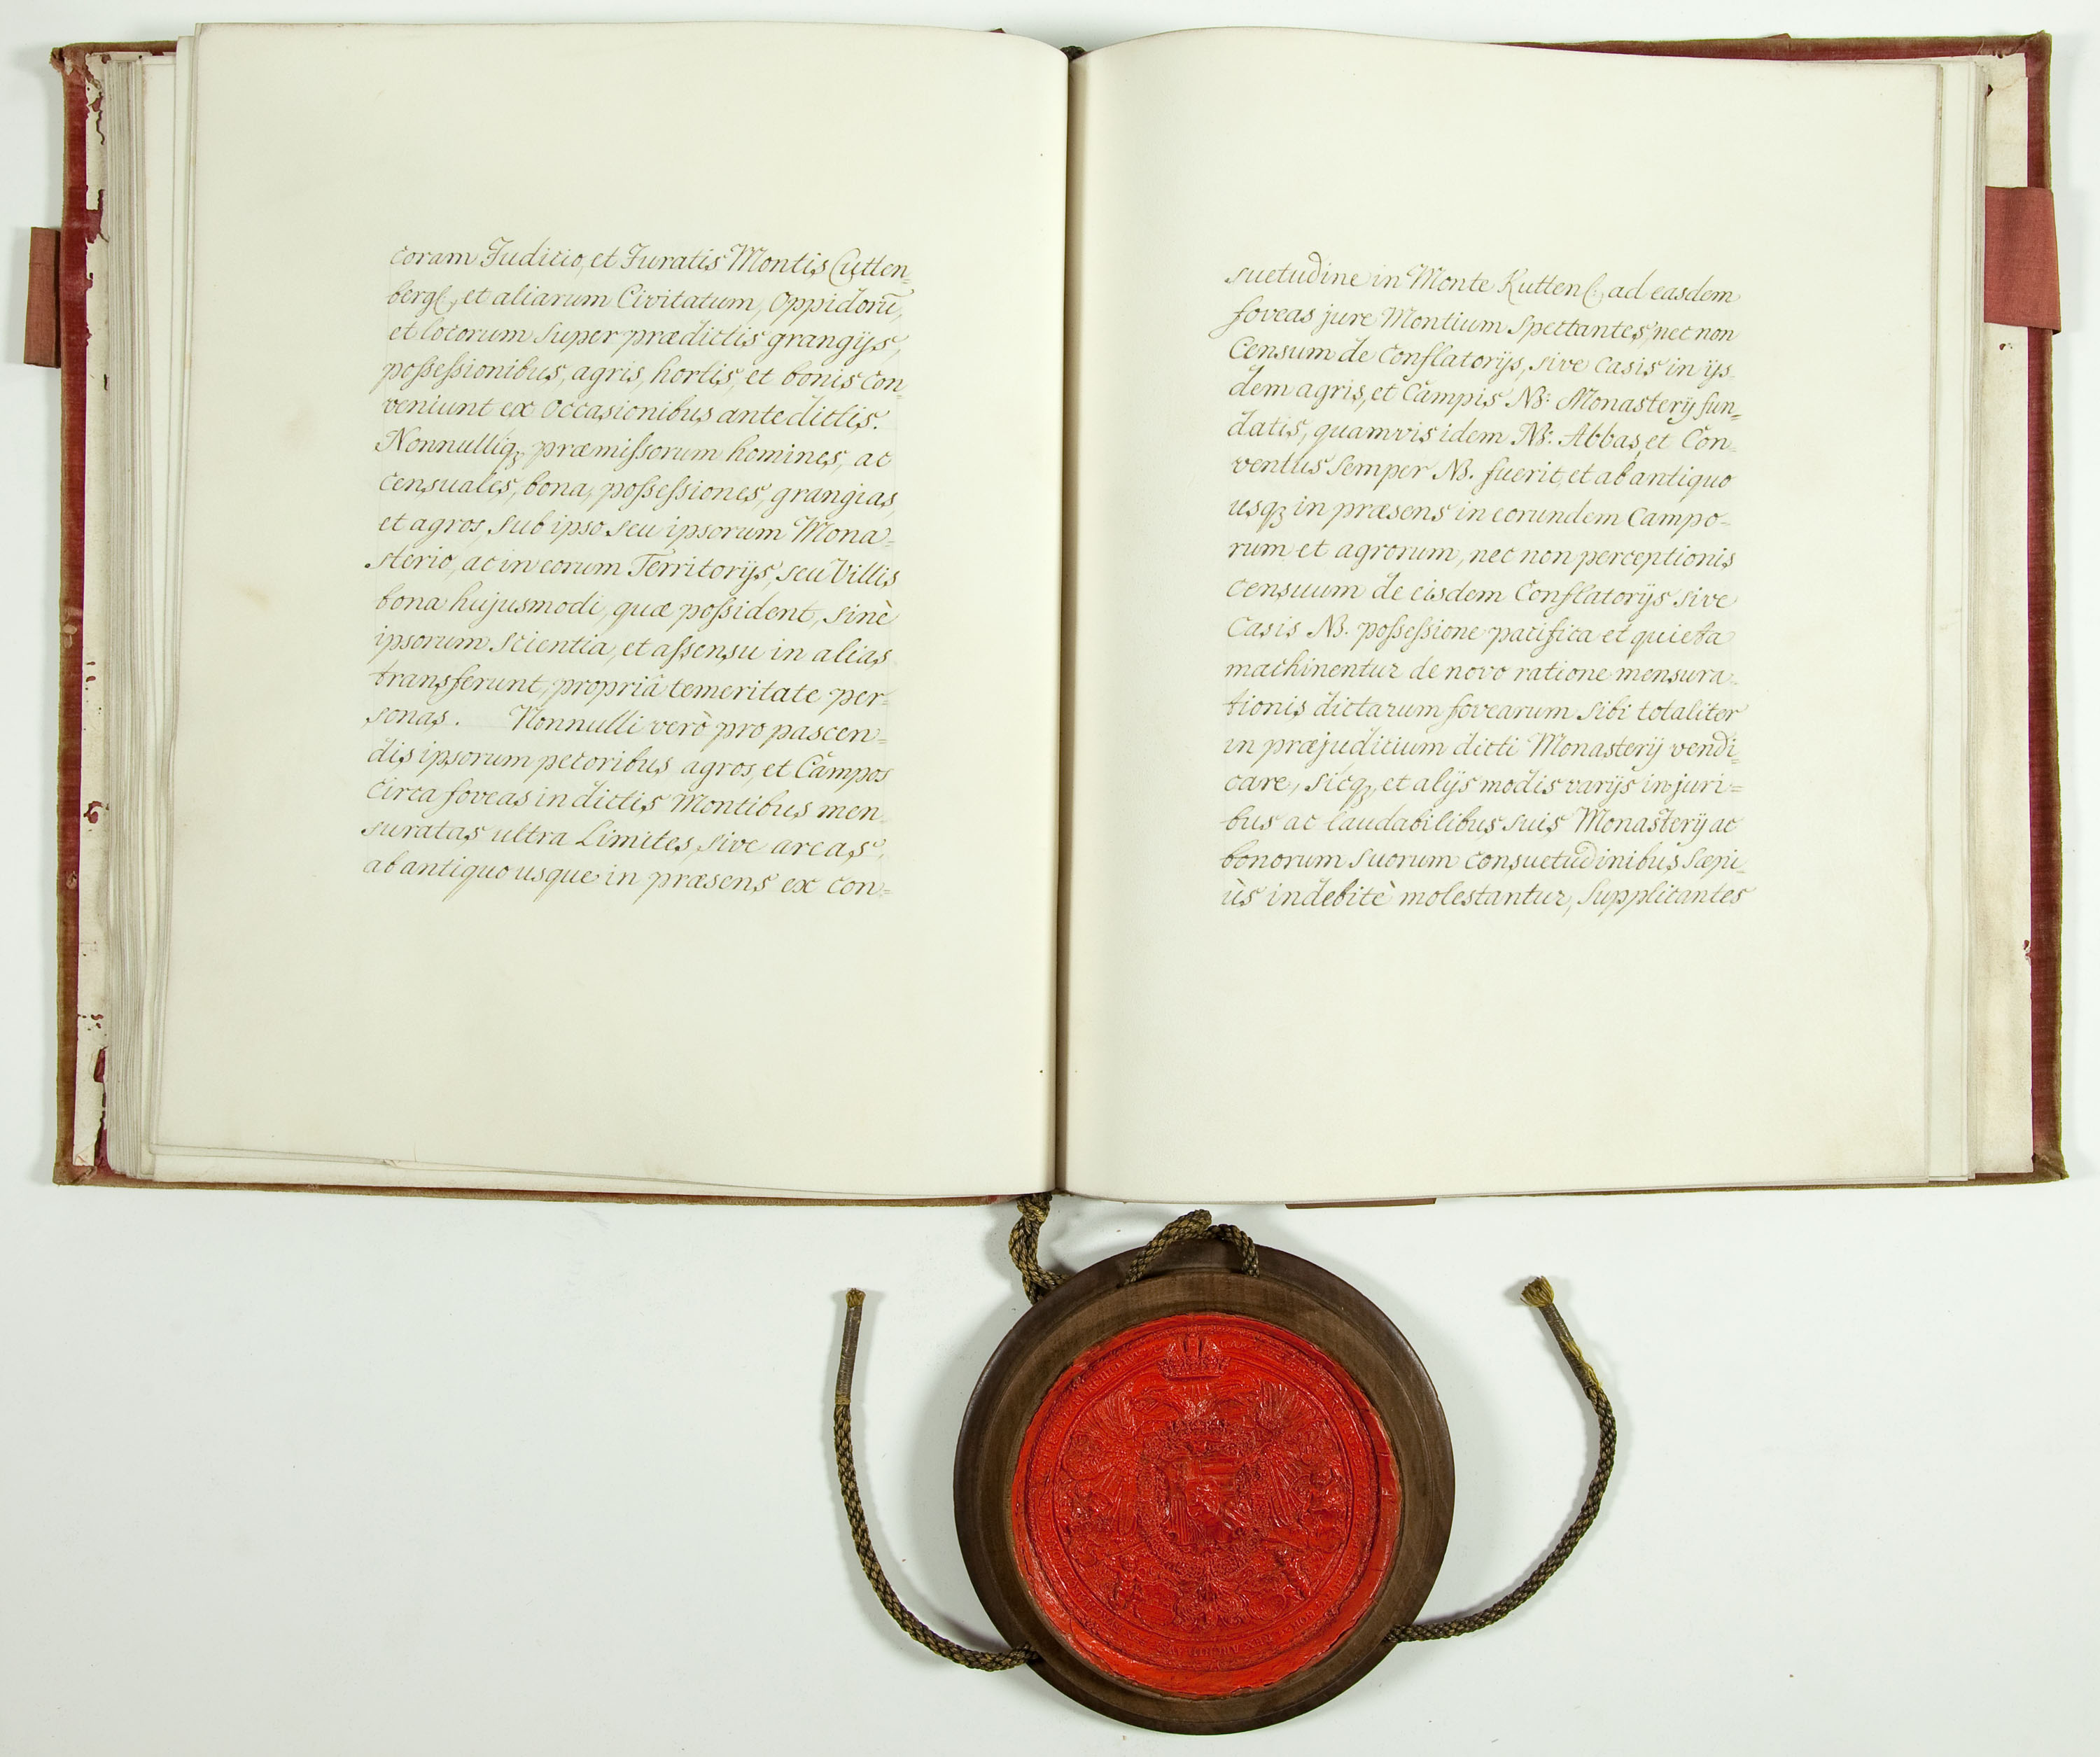 coram Juditio, et Juratis Montis Cutten=
berg, et aliarum Civitatum, Oppidorū,
et locorum super prædictis grangijs,
possessionibus, agris, hortis, et bonis con=
veniunt ex occasionibus antedictis.
Nonnulliq₃ præmissorum homines, ac
censuales, bona, possessiones, grangias,
et agros, sub ipso seu ipsorum Mona=
sterio, ac in eorum Territorijs, seu Villis
bona hujusmodi, quæ possident, sinè
ipsorum scientia, et assensu in alias
transferunt, propriâ temeritate per=
sonas. Nonnulli verò pro pascen=
dis ipsorum pecoribus agros, et Campos
circa foveas in dictis Montibus men=
suratas ultra Limites, sive areas,
ab antiquo usque in præsens ex con=
suetudine in Monte Kutten, ad easdem
foveas jure Montium spectantes, nec non
Censum de Conflatorijs, sive Casis in ijs=
dem agris, et Campis NB: Monasterij fun=
datis, quamvis idem NB: Abbas, et Con=
ventus semper NB. fuerit, et ab antiquo
usq₃ in præsens in eorundem Campo=
rum et agrorum, nec non perceptionis
censuum de eisdem Conflatorijs sive
Casis NB. possessione pacifica et quieta
machinentur de novo ratione mensura=
tionis dictarum fovearum sibi totaliter
in præjudicium dicti Monasterij vendi=
care, sicq₃, et alijs modis varijs in juri=
bus ac laudabilibus suis Monasterij ac
bonorum suorum consuetudinibus sæpi=
ùs indebitè molestantur, Supplicantes